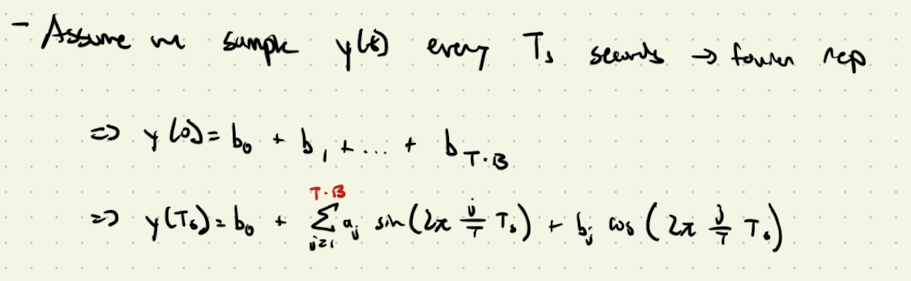 - Assume we sample y(t) every T_s seconds → fourier rep
⇒ y(0) = b_0 + b_1 + ... + b_{T·B}
⇒ y(T_s) = b_0 + \sum_{j=1}^{T·B} a_j sin(2π \frac{j}{T} T_s) + b_j cos(2π \frac{j}{T} T_s)